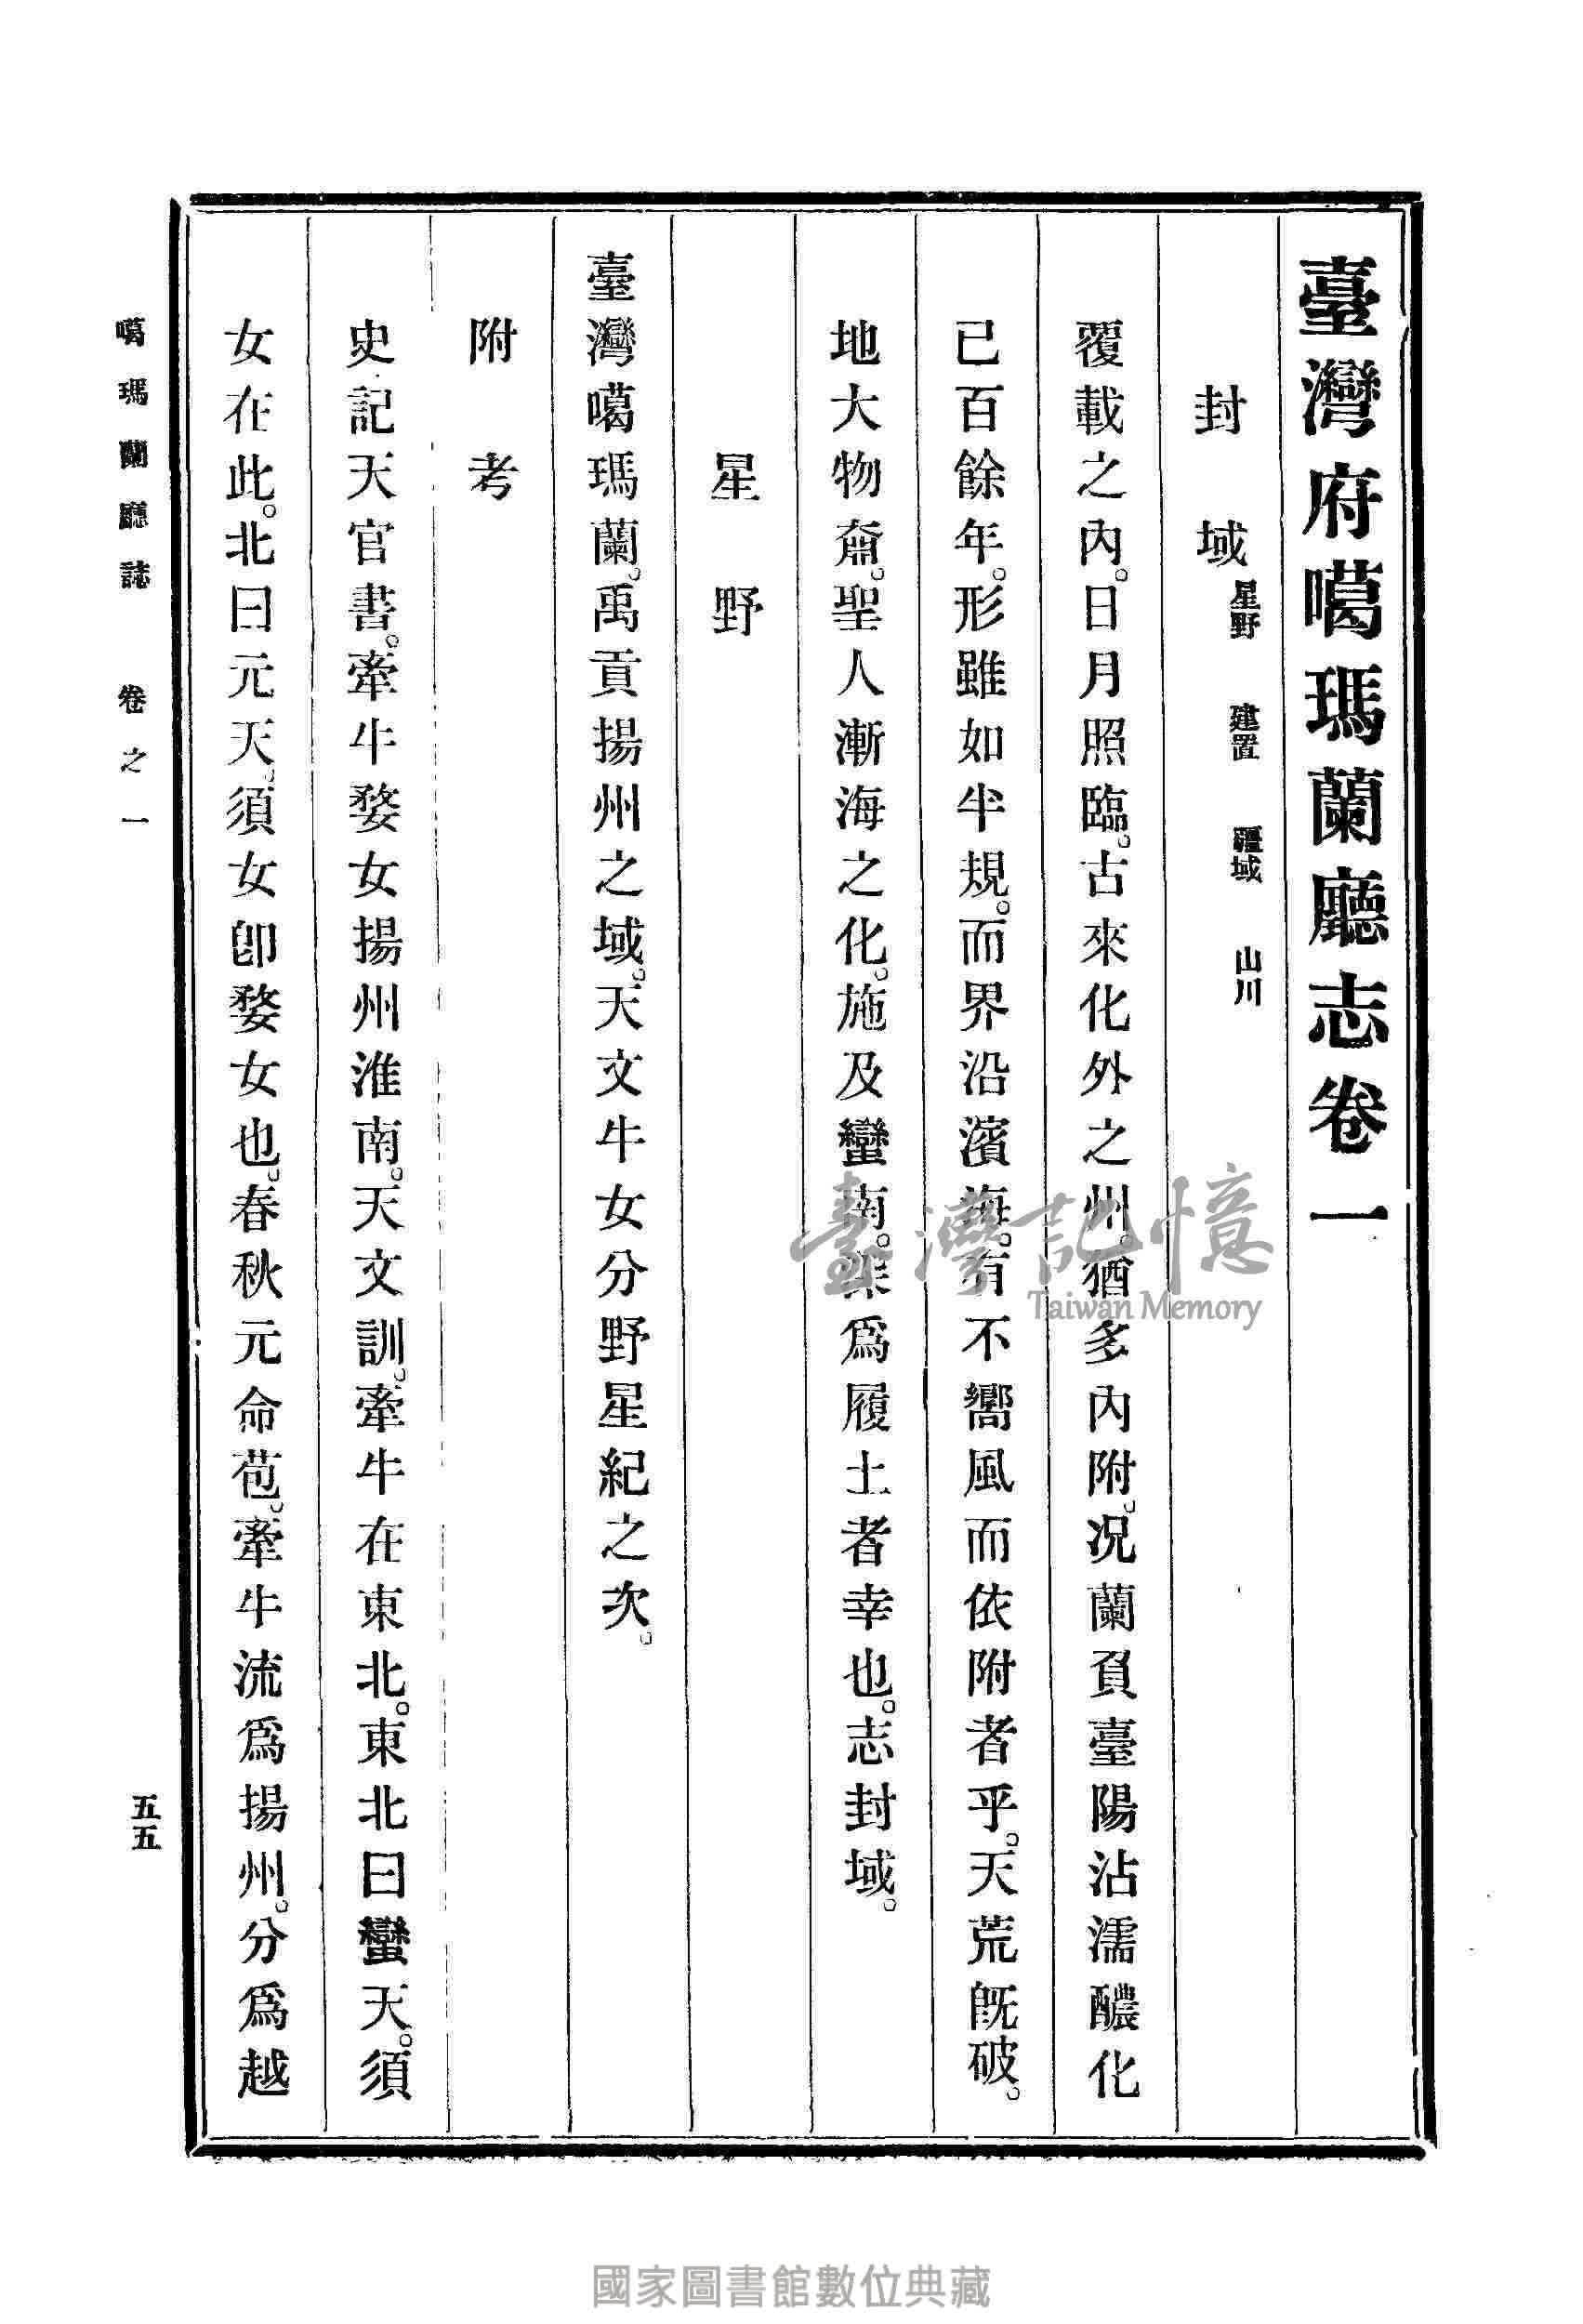 臺灣府噶瑪蘭廳志卷一
封域 星野 建置 疆域 山川
覆載之內。日月照臨。古來化外之州。猶多內附。况蘭負臺陽沾濡醲化
已百餘年。形雖如半規。而界沿濱海。有不嚮風而依附者乎。天荒旣破。
地大物奫。聖人漸海之化。施及蠻南。渠爲履土者幸也。志封域。
星野
臺灣噶瑪蘭。禹貢揚州之域。天文牛女分野星紀之次。
附考
史記天官書。牽牛婺女揚州淮南。天文訓。牽牛在東北。東北曰蠻天。須
女在此。北曰元天。須女卽婺女也。春秋元命苞。牽牛流爲揚州。分爲越
噶瑪蘭廳誌 卷之一
五五
臺灣記憶
Taiwan Memory
國家圖書館數位典藏